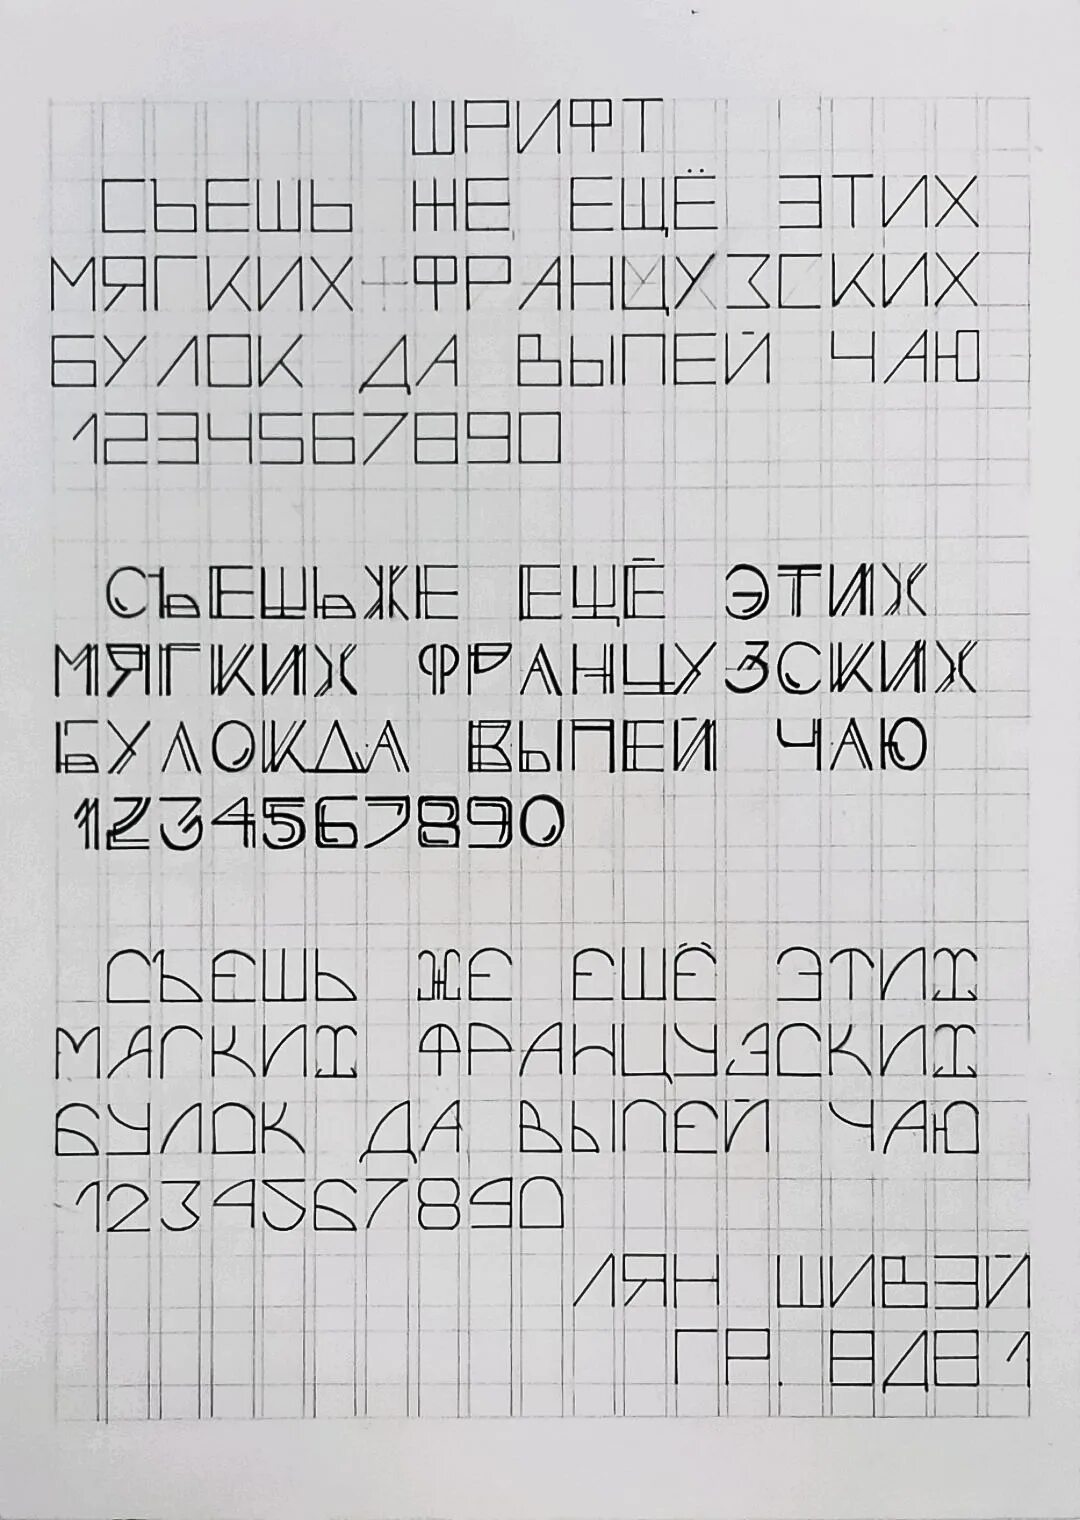 ШРИФТ
СЪЕШЬ ЖЕ ЕЩЁ ЭТИХ
МЯГКИХ ФРАНЦУЗСКИХ
БУЛОК ДА ВЫПЕЙ ЧАЮ
1234567890
СЪЕШЬЖЕ ЕЩЁ ЭТИХ
МЯГКИХ ФРАНЦУЗСКИХ
БУЛОКДА ВЫПЕЙ ЧАЮ
1234567890
СЪЕШЬ ЖЕ ЕШЁ ЭТИХ
МЯГКИХ ФРАНЦУЗСКИХ
БУЛОК ДА ВЫПЕЙ ЧАЮ
1234567890
ЛЯН ШИВЭЙ
ГР. 8Д81